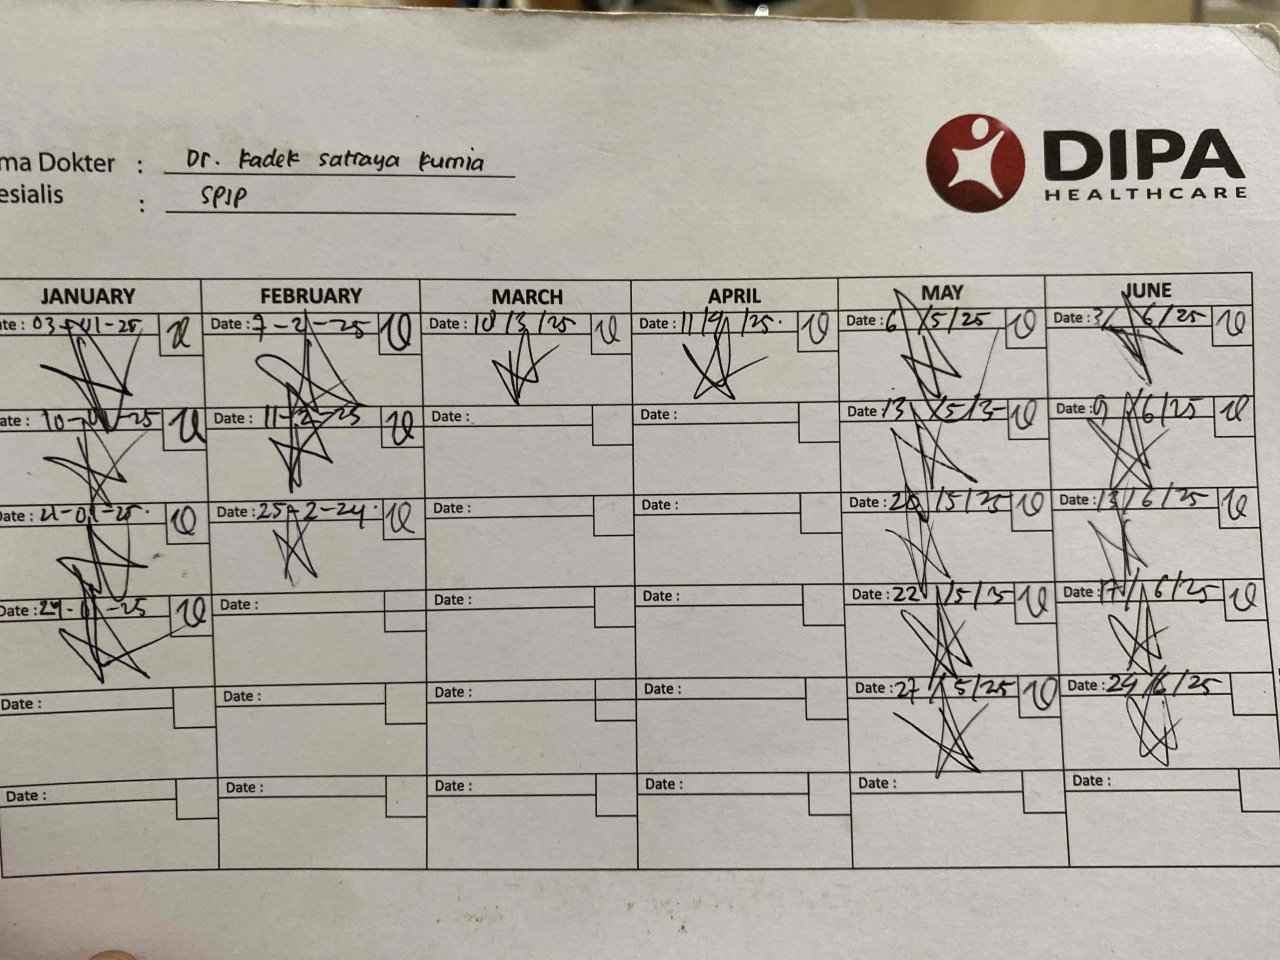 ma Dokter : Dr. Kadek satraya kurnia
esialis : SPJP
DIPA
HEALTHCARE
JANUARY FEBRUARY MARCH APRIL MAY JUNE
ate : 03-01-25 Date : 7-2-25 Date : 10/3/25 Date : 11/4/25. Date : 6/5/25 Date : 3/6/25
ate : 10-01-25 Date : 11-2-25 Date : Date : Date : 13/5/25 Date : 9/6/25
Date : 21-01-25. Date : 25-2-24. Date : Date : Date : 20/5/25 Date : 13/6/25
Date : 24-01-25 Date : Date : Date : Date : 22/5/25 Date : 17/6/25
Date : Date : Date : Date : Date : 27/5/25 Date : 24/6/25
Date : Date : Date : Date : Date : Date :